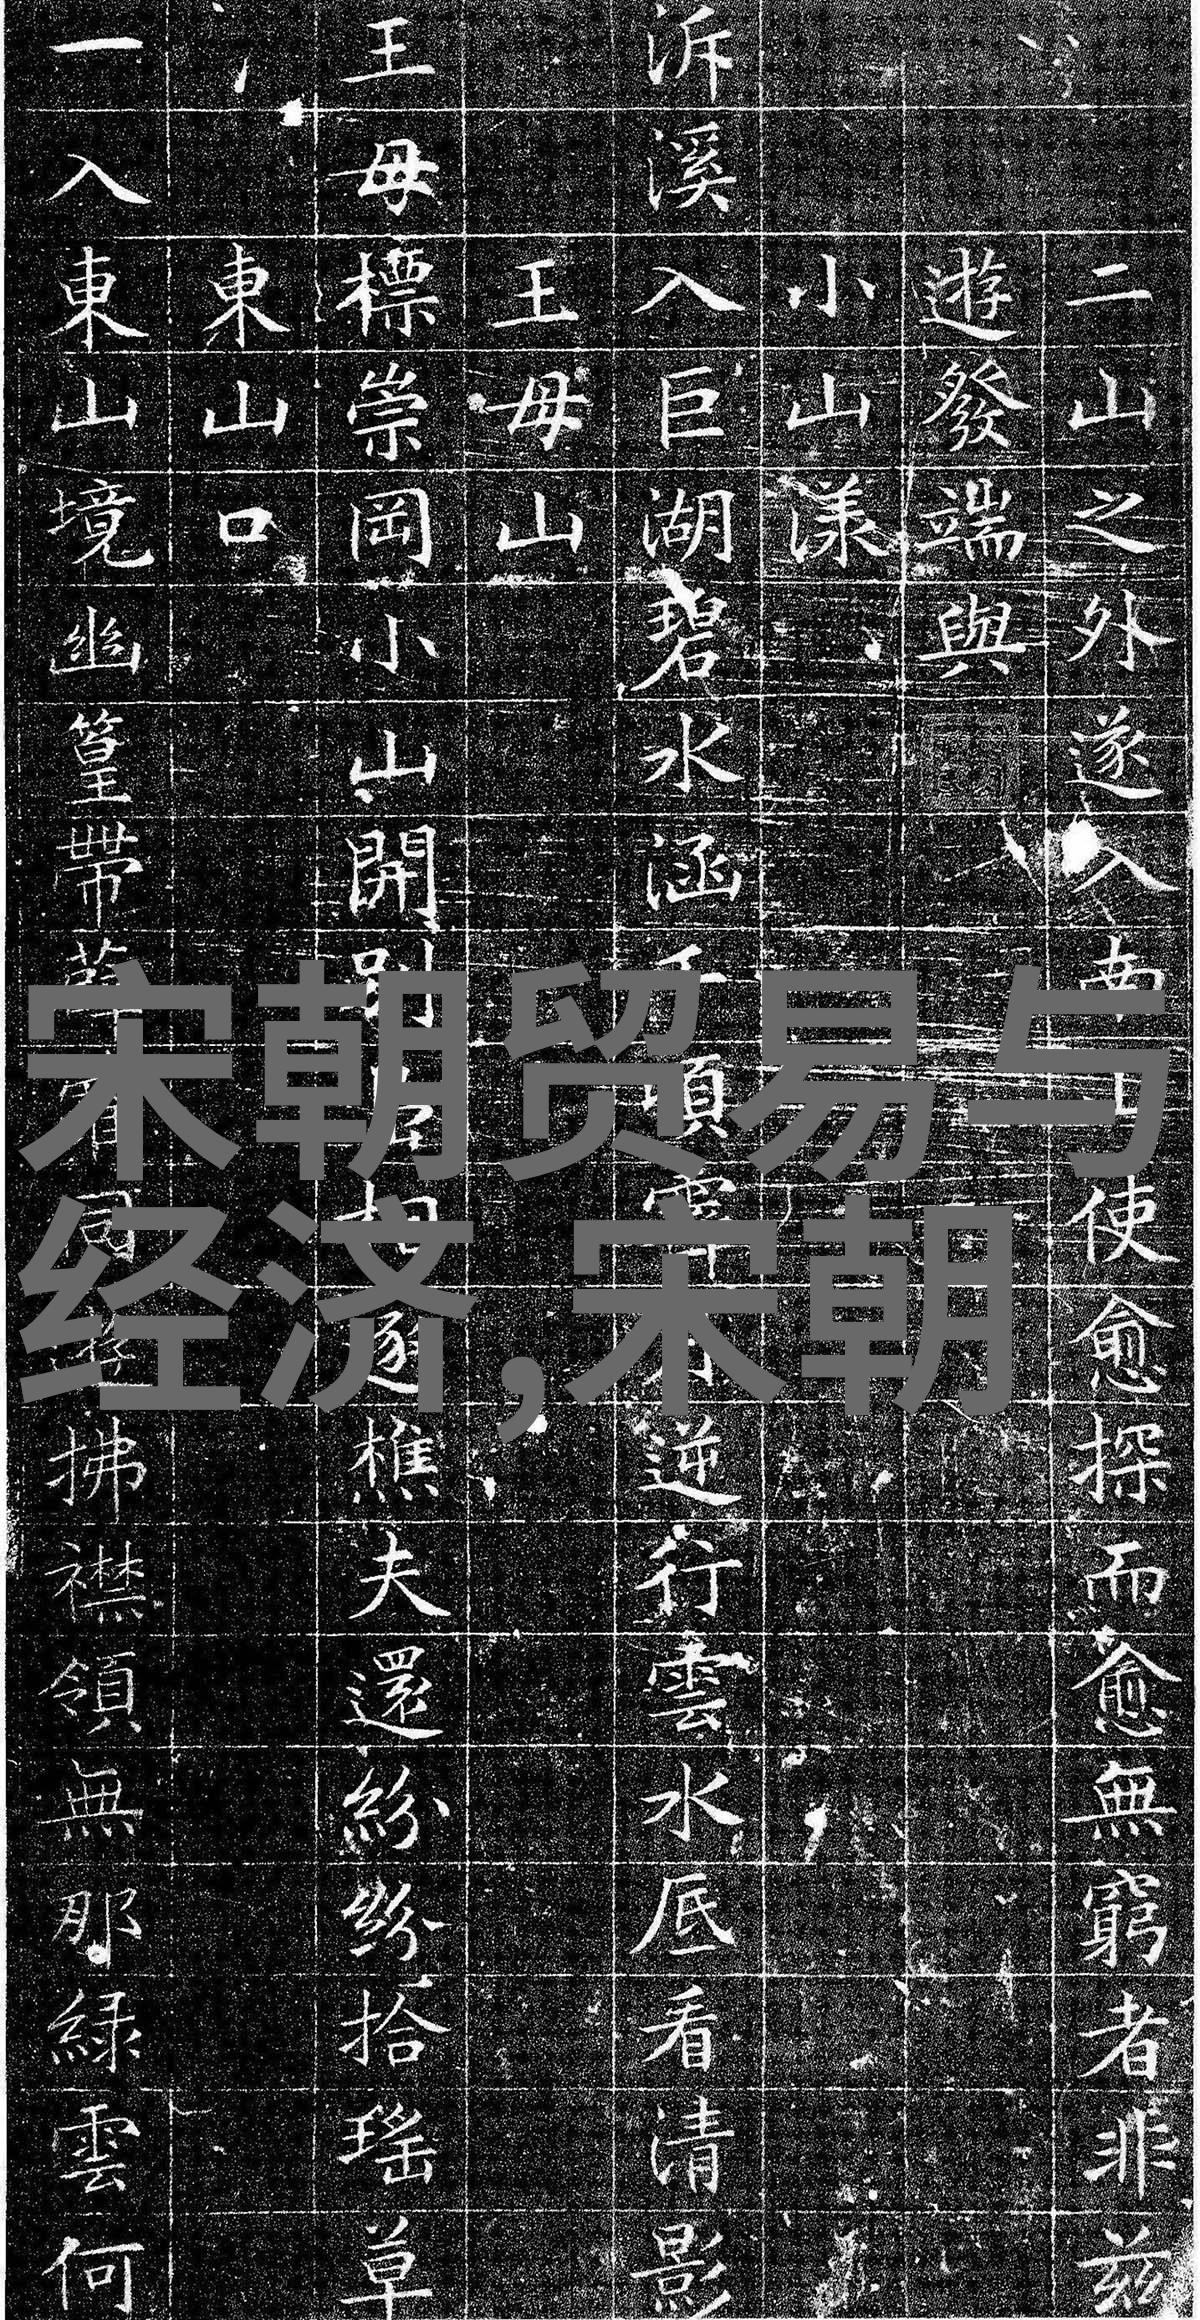 二山之外遂入南山使愈探而愈無窮者非茲
遊發端與
小山漾
泝溪入巨湖碧水涵千頃逆行雲水底看清影
王母山
王母標崇岡小山開別遂樵夫還紛紛拾瑤草
東山口
一入東山境幽篁帶拂襟領無那綠雲何
宋朝贸易与
经济,宋朝